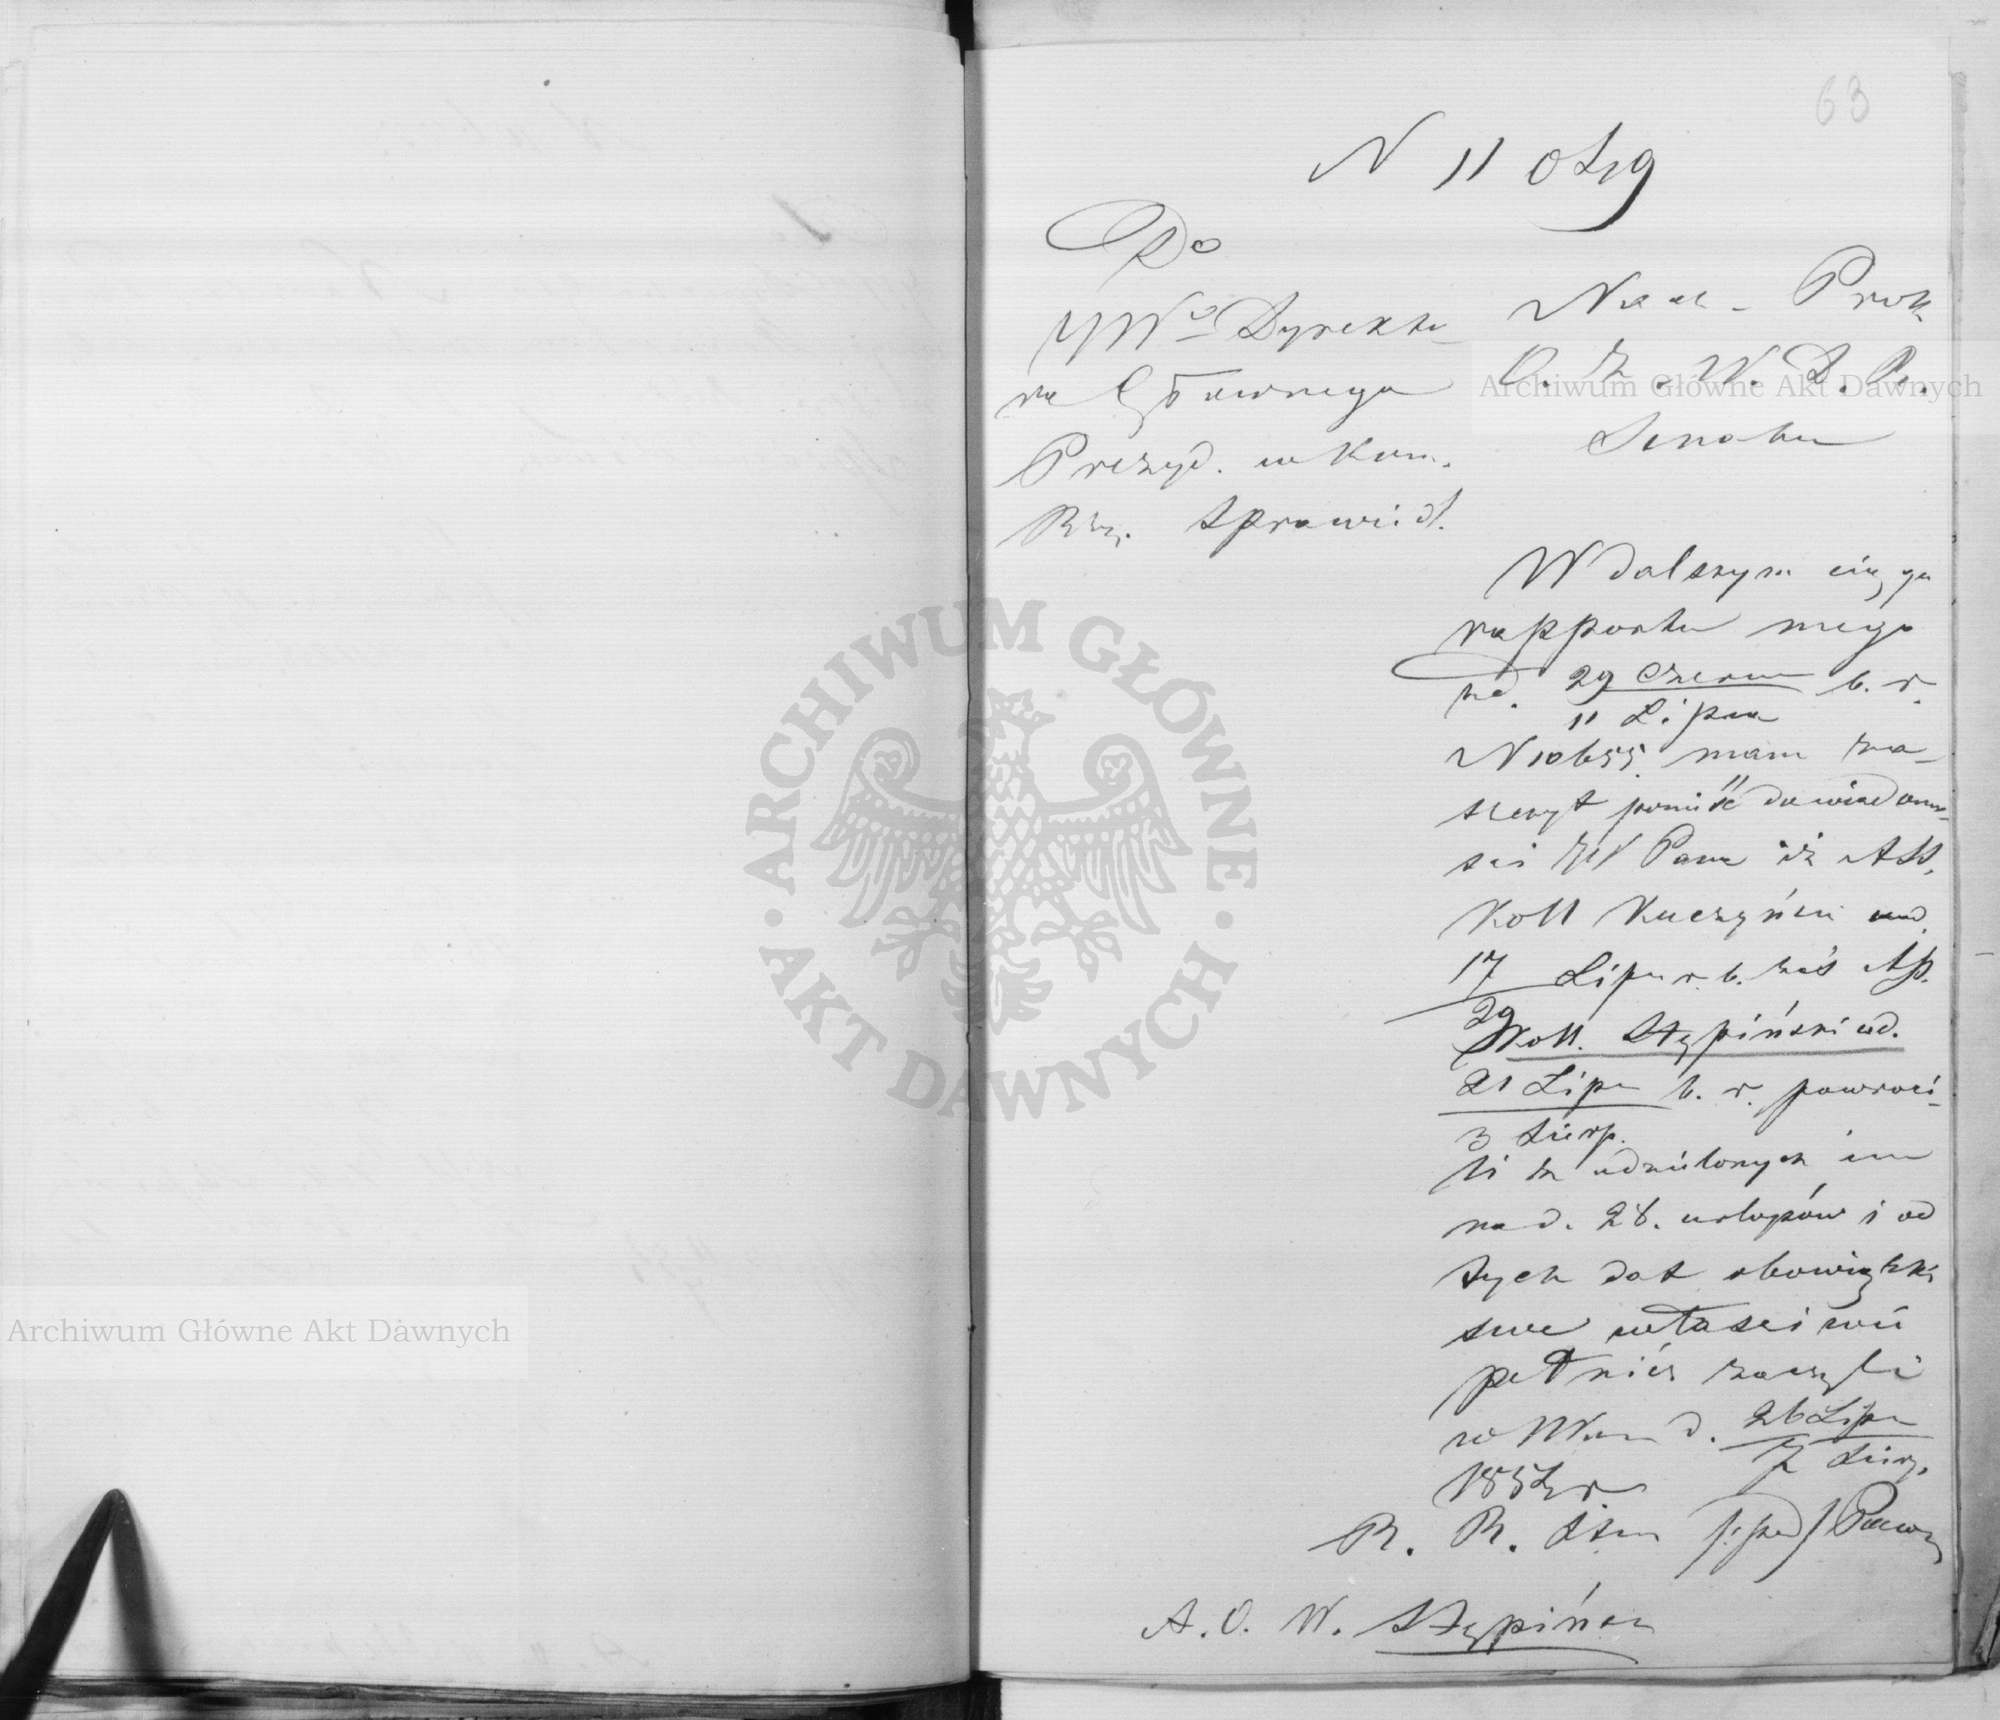 63
N 11 049
Do
JWo Dyrekto
ra Głównego
Prezyd. w Kom.
Rzą. Sprawiedl.
Nacz. Prok.
O. Z. W. D. R.
Senatu
W dalszym ciągu
rapportu mego
z d. 29 Czerw b. r.
11 Lipca
N 10655. mam za-
szczyt ponieść do wiadomo-
ści JW Pana iż Ass.
Koll Kuczyński od
17 Lipca r. b. zaś Ass.
29
Koll. Stępiński od.
21 Lipc b. r. powróci-
3 Sierp.
li z udzielonych im
na d. 28. urlopów i od
tych dat obowiązki
swe właściwie
pełnić zaczęli
w Warz d. 26 Lipc
7 Sierp.
1854 r.
R. R. Stan (podp)
A. O. W. Stępiński
ARCHIWUM GŁÓWNE AKT DAWNYCH
Archiwum Główne Akt Dawnych
Archiwum Główne Akt Dawnych